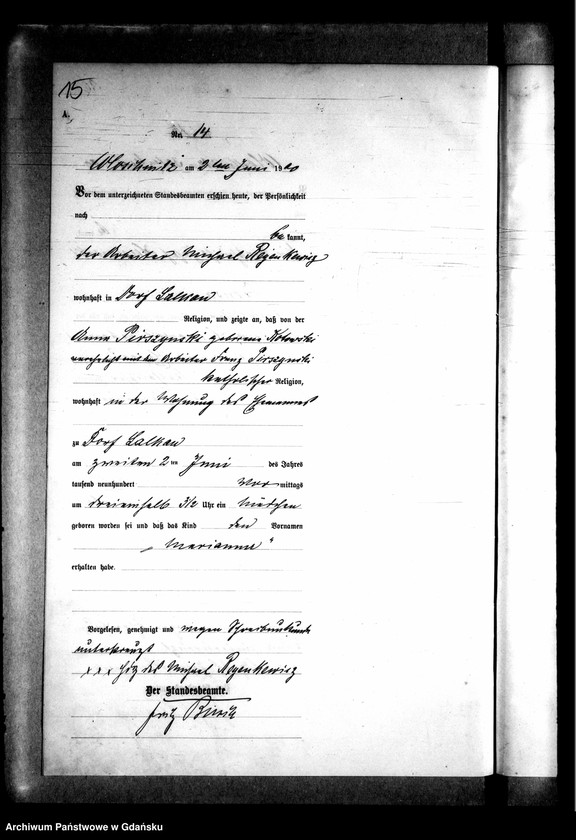 15
A.
Nr. 14
am 2ten Juni 1900
Vor dem unterzeichneten Standesbeamten erschien heute, der Persönlichkeit
nach
be kannt,
der Arbeiter Michael
wohnhaft in Dorf Lalkau
Religion, und zeigte an, daß von der
Anna Pirszynski geborene Kotowski
verehelicht mit dem Arbeiter Franz Pirszynski
katholischer Religion,
wohnhaft in der Wohnung des Ehemannes
zu Dorf Lalkau
am zweiten 2ten Juni des Jahres
tausend neunhundert Vor mittags
um dreieinhalb 3½ Uhr ein Mädchen
geboren worden sei und daß das Kind den Vornamen
„Marianna"
erhalten habe.
Vorgelesen, genehmigt und wegen Schreibunkunde
unterkreuzt
x x x Hdz des Michael
Der Standesbeamte.
Fritz
Archiwum Państwowe w Gdańsku